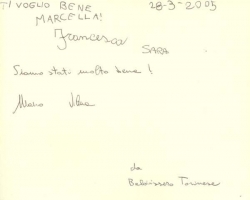 TI VOGLIO BENE 28-3-2005
MARCELLA!
Francesca
SARA
Siamo stati molto bene!
Mario
da
Baldissero Torinese